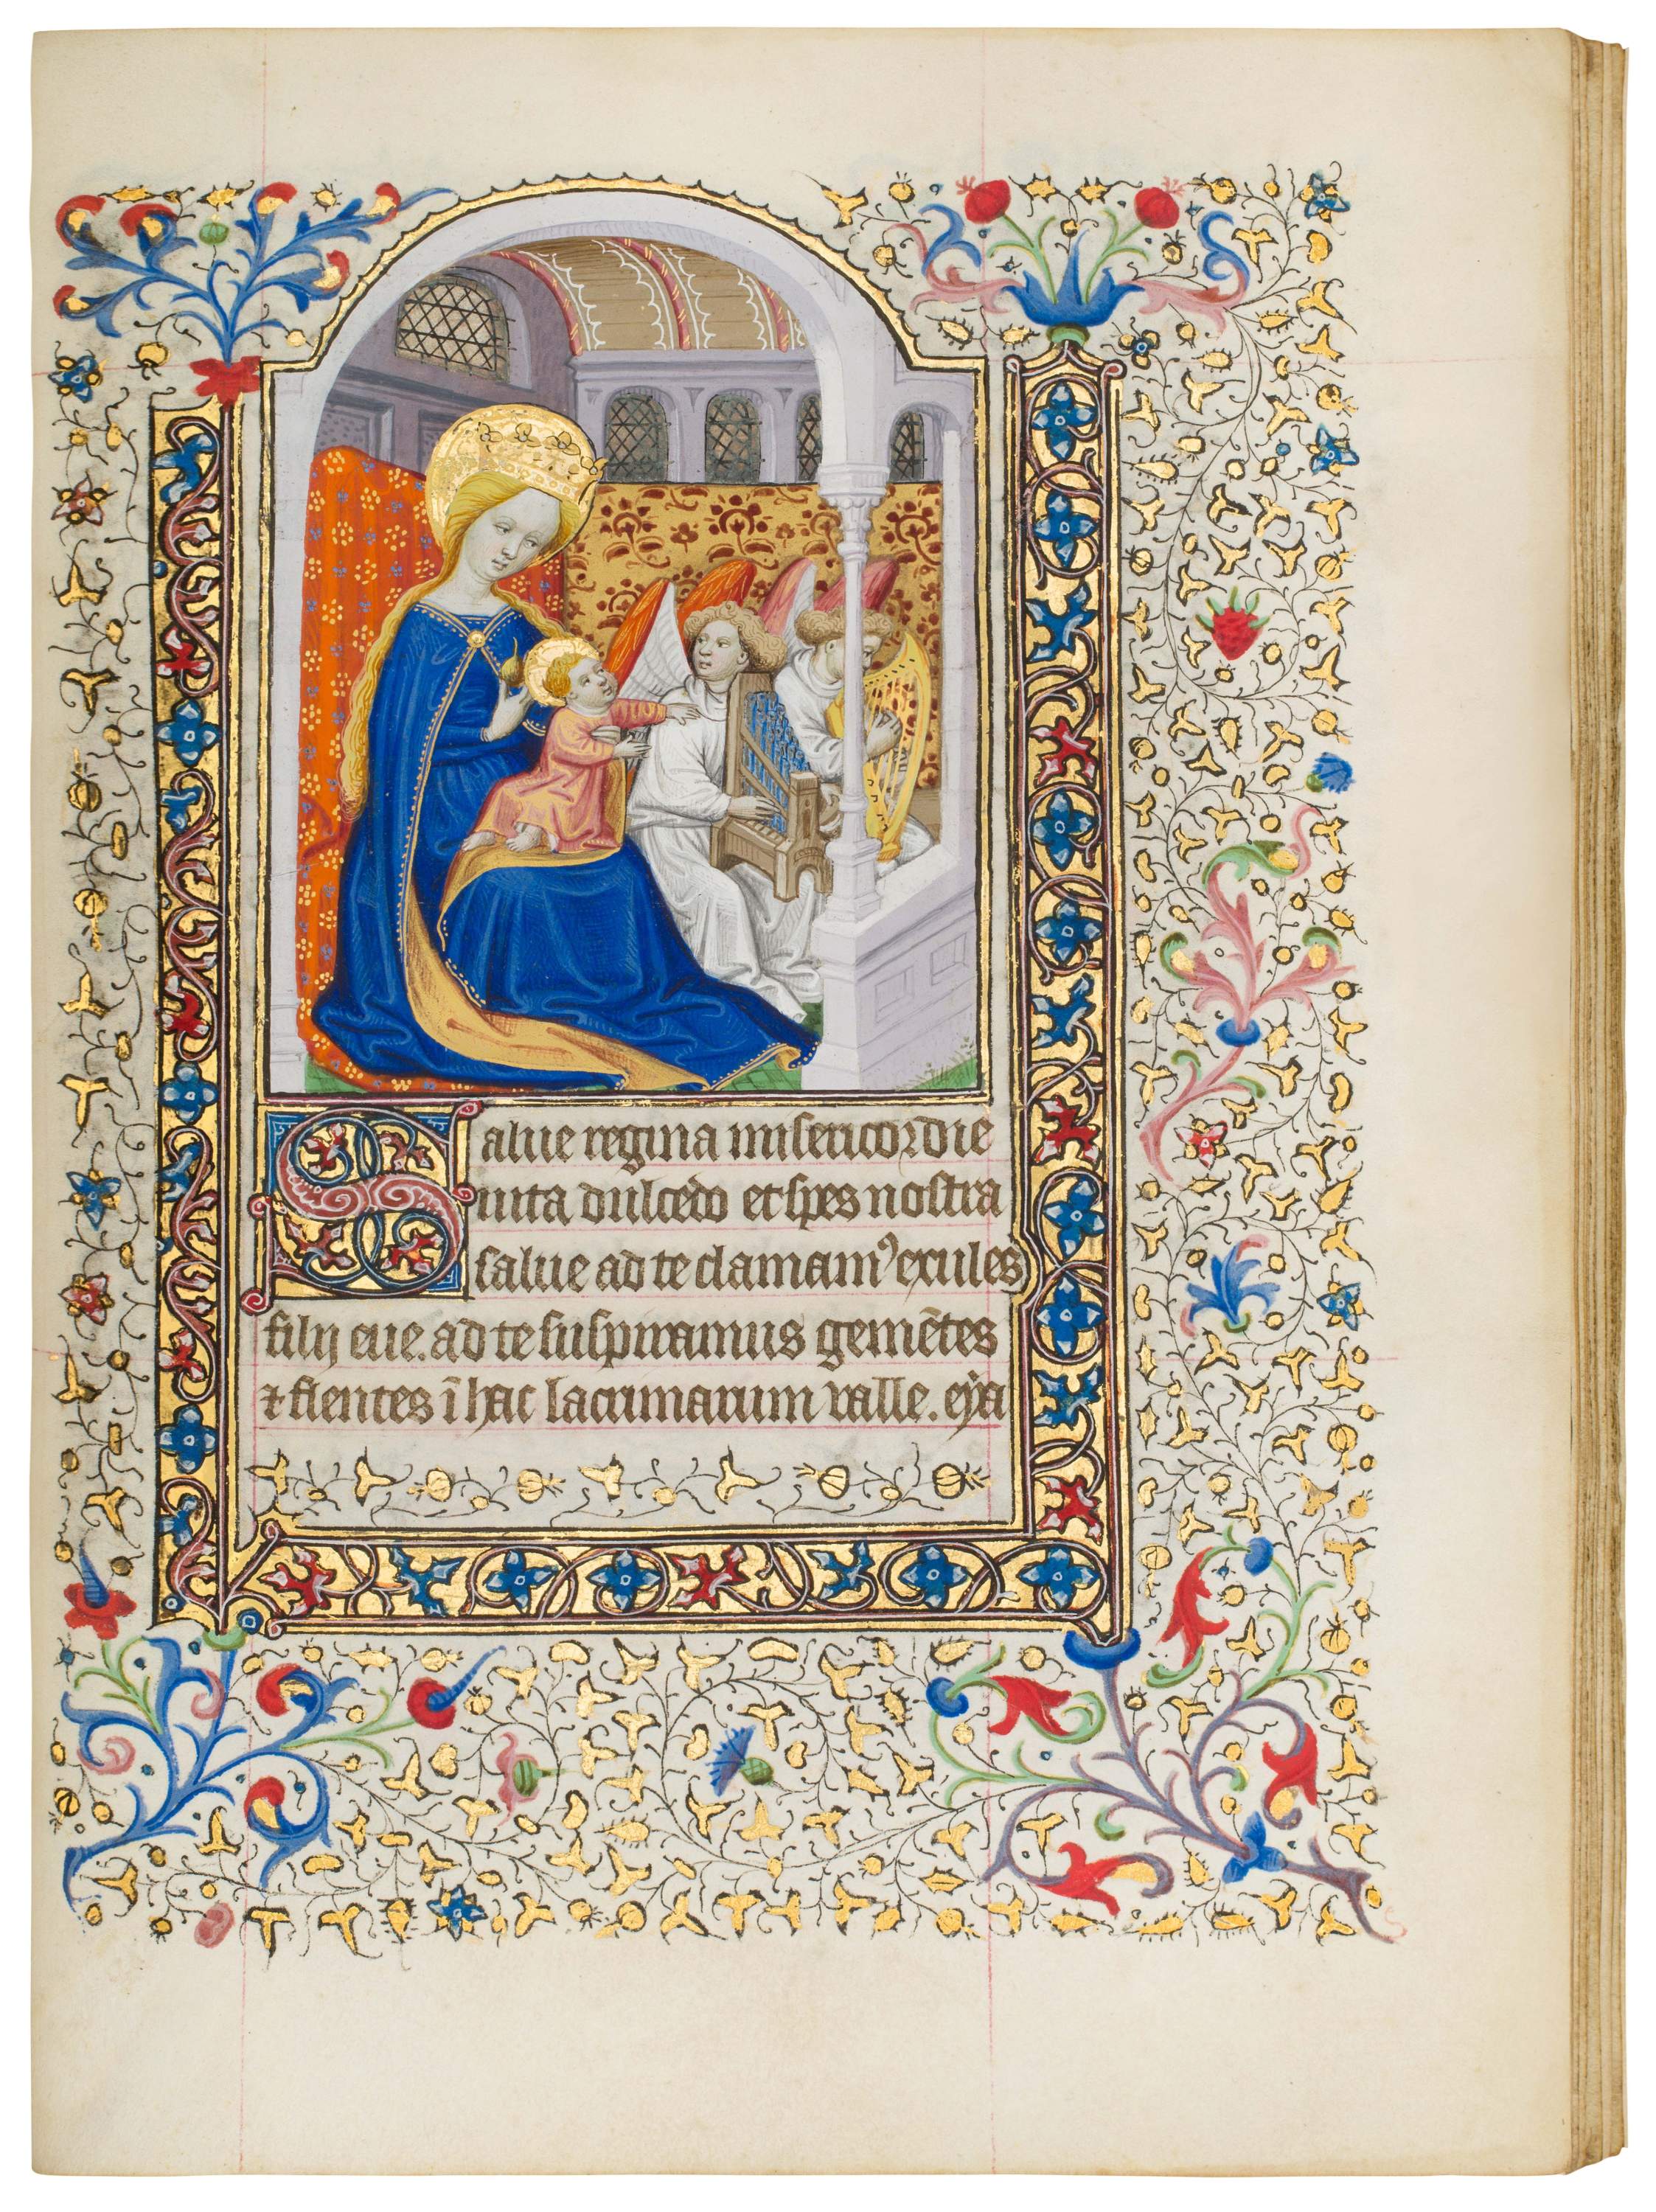 Salue regina misericordie
uita dulcedo et spes nostra
salue ad te clamamꝰ exules
filij eue. ad te suspiramus gemētes
⁊ flentes ī hac lacrimarum valle. eẏa